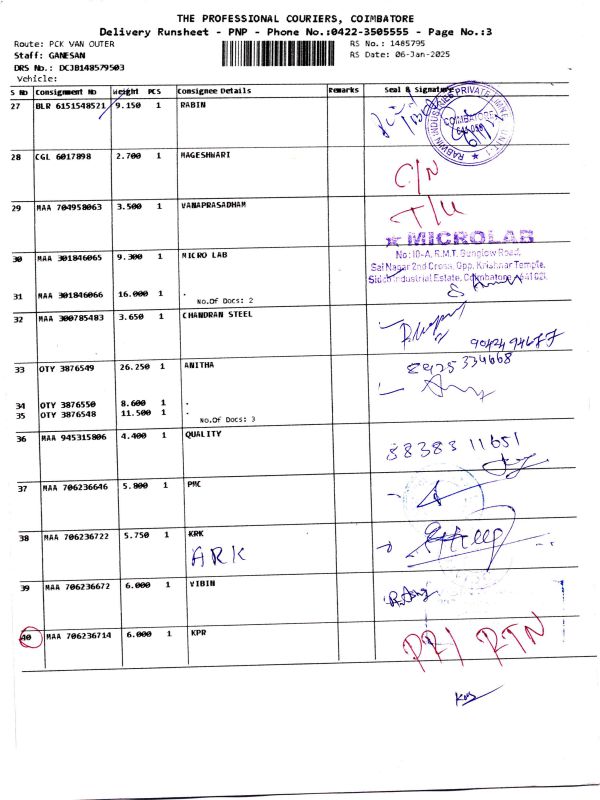 THE PROFESSIONAL COURIERS, COIMBATORE
Delivery Runsheet - PNP - Phone No.:0422-3505555 - Page No.:3
Route: PCK VAN OUTER
RS No.: 1485795
Staff: GANESAN
RS Date: 06-Jan-2025
DRS No.: DCJB148579503
Vehicle:
S No Consignment No Weight PCS Consignee Details Remarks Seal & Signature
27 BLR 6151548521 9.150 1 RABIN
COIMBATORE
28 CGL 6017898 2.700 1 MAGESHWARI
C/N
29 MAA 704958063 3.500 1 VANAPRASADHAM
T/U
★ MICROLAB
30 MAA 301846065 9.300 1 MICRO LAB
No:10-A, R.M.T. Bunglow Road,
Sai Nagar 2nd Cross, Opp. Krishnar Temple,
Sidco Industrial Estate, Coimbatore - 641 021.
31 MAA 301846066 16.000 1 .
No.Of Docs: 2
32 MAA 300785483 3.650 1 CHANDRAN STEEL
33 OTY 3876549 26.250 1 ANITHA
34 OTY 3876550 8.600 1 .
35 OTY 3876548 11.500 1 .
No.Of Docs: 3
36 MAA 945315806 4.400 1 QUALITY
88383 11651
37 MAA 706236646 5.800 1 PMC
38 MAA 706236722 5.750 1 KRK
ARK
39 MAA 706236672 6.000 1 VIBIN
40 MAA 706236714 6.000 1 KPR
PR/ RTN